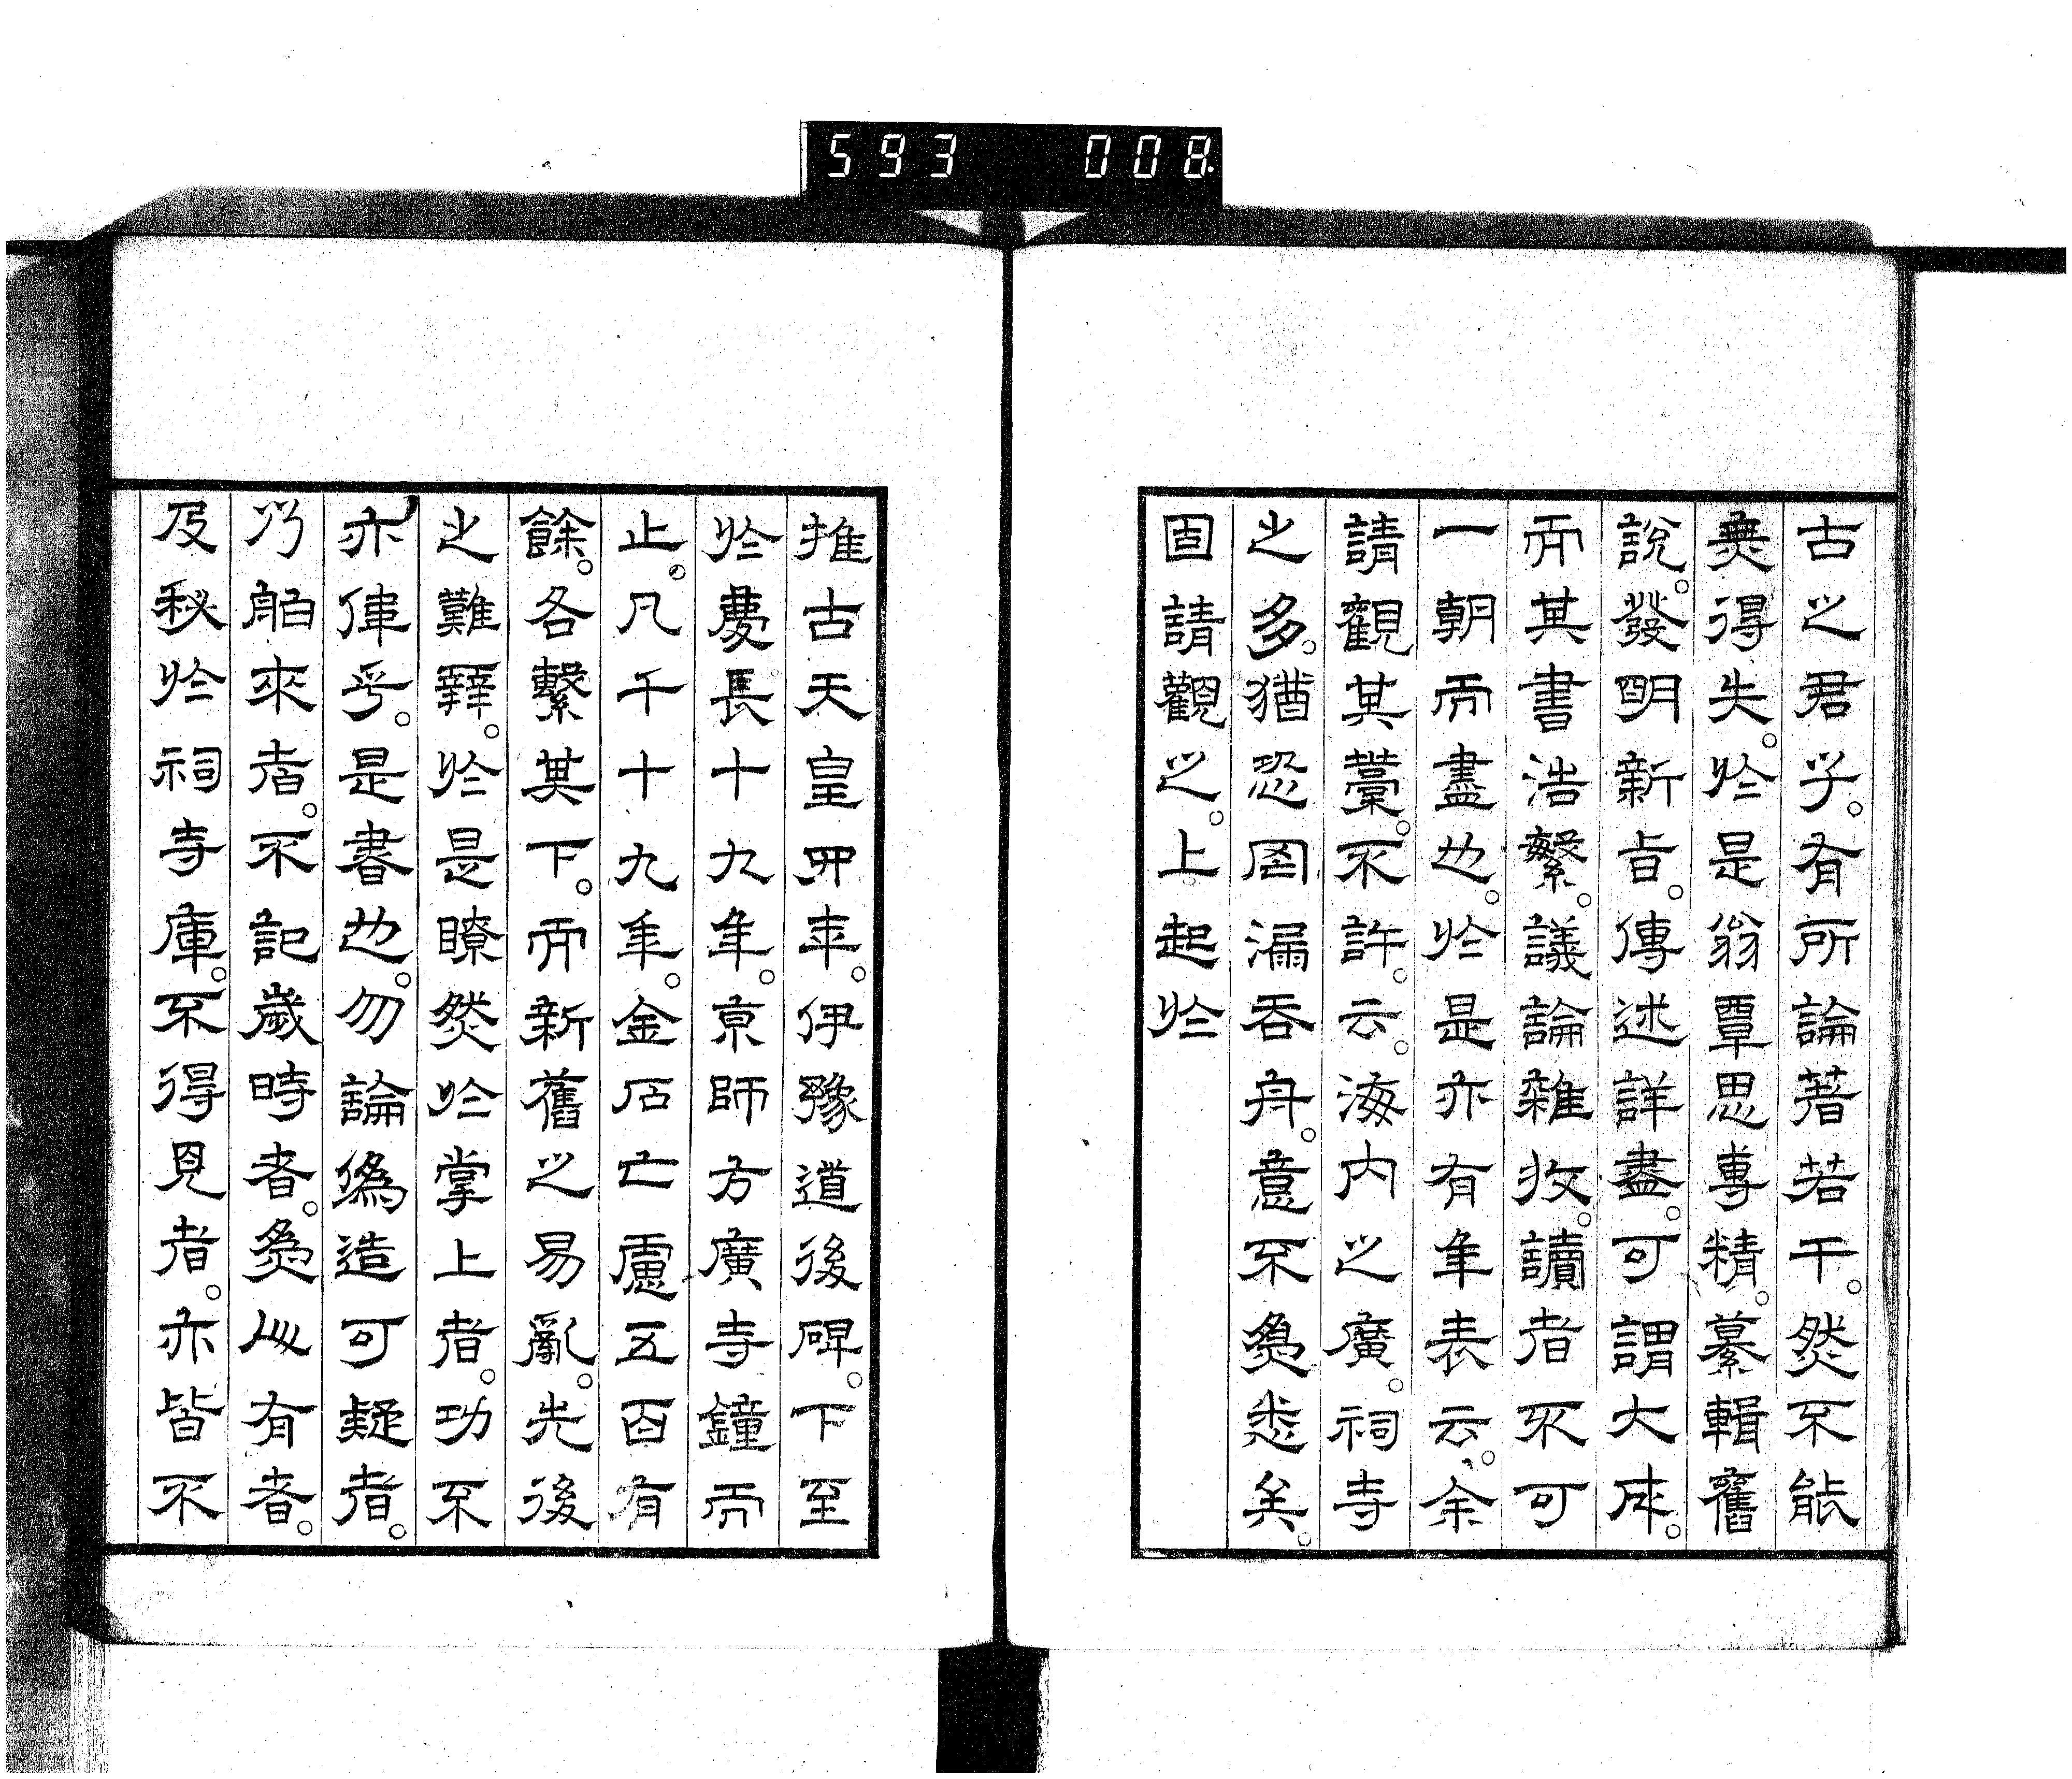 593 008
古之君子。有所論著若干。然不能
無得失。於是翁覃思専精。纂輯舊
說。發明新旨。傳述詳盡。可謂大成。
而其書浩繁。議論雜收。讀者不可
一朝而盡也。於是亦有年表云。余
請觀其藁。不許云。海内之廣。祠寺
之多。猶恐罔漏吞舟。意不為悉矣。
固請觀之。上起於
推古天皇四年。伊豫道後碑。下至
於慶長十九年。京師方廣寺鐘而
止。凡千十九年。金石亡慮五百有
餘。各繫其下。而新舊之易亂。先後
之難辯。於是瞭然於掌上者。功不
亦偉乎。是書也。勿論偽造可疑者。
乃舶來者。不記歲時者。為此有者。
及秘於祠寺庫。不得見者。亦皆不